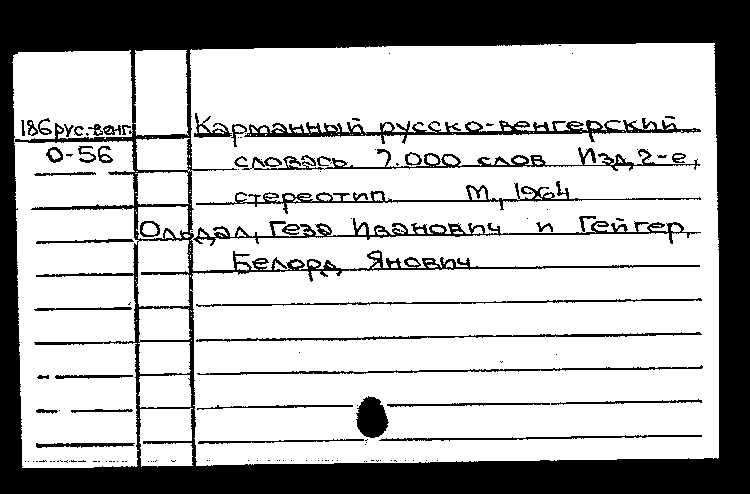 186рус.-венг. Карманный русско-венгерский
О-56 словась. 7.000 слов Изд, 2-е,
стереотип. М., 1964
Ольдал, Геза Иванович и Гейгер,
Белорд Янович